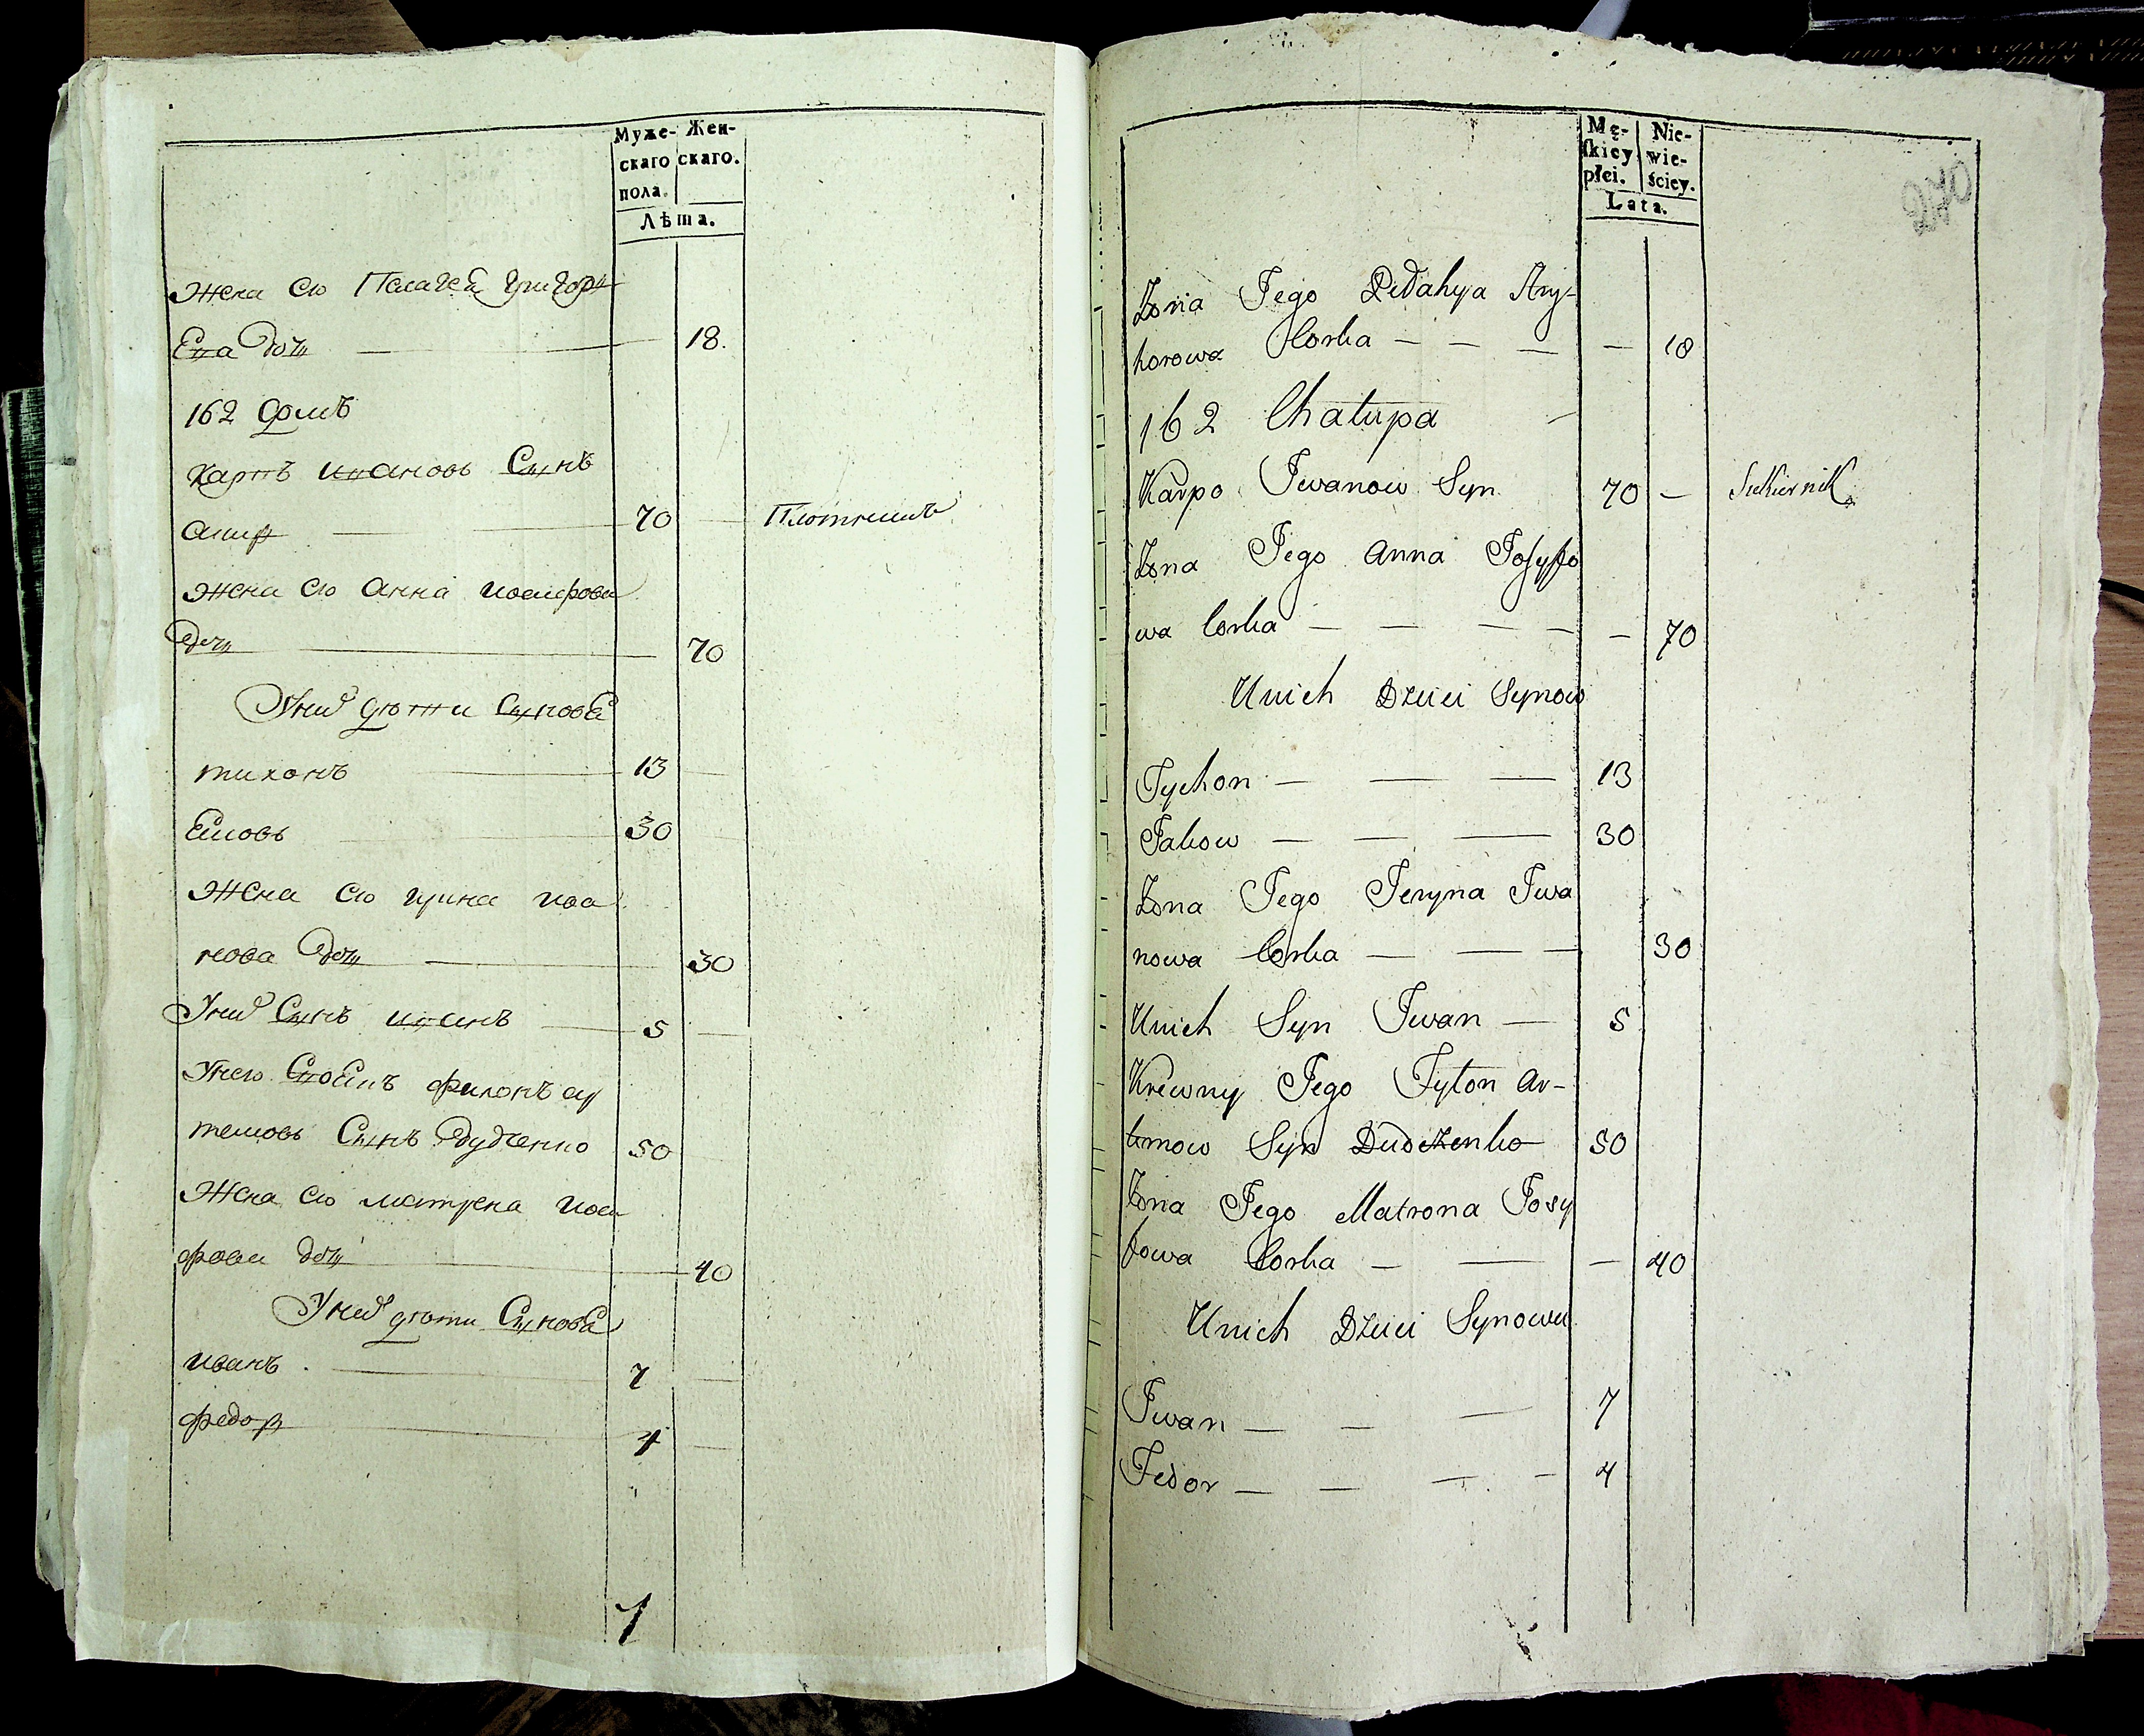 Муже- Жен-
скаго скаго.
пола.
Лѣта.
Жена его Пелагея Григорь
ева дочь 18.
162 домъ
Карпъ Ивановъ Сынъ
70 Плотникъ
Жена его Анна Иосифова
дочь 70
У них дѣти Сыновья
Тихонъ 13
30
Жена его Ирина Ива
нова дочь 30
У них Сынъ Иванъ 5
У него Филонъ Ар
темовъ Сынъ Дудченко 50
Жена его Матрена Иоси
фова дочь 40
У них дѣти Сыновья
Иванъ 7
Федоръ 4
Mę- Nie-
ſkiey wie-
płci. ściey.
Lata.
270
Żona Jego Pedahya Hry-
horowa Corka — — — — 18
162 Chatupa
Karpo Iwanow Syn 70 — Siekiernik
Żona Jego Anna Joſyfo
wa Corka — — — — — 70
Unich Dzieci Synow
Tychon — — — 13
Jakow — — — 30
Żona Jego Jeryna Iwa
nowa Corka — — — 30
Unich Syn Iwan — 5
Krewny Jego Fyton Ar-
temow Syn Dudczenko 50
Żona Jego Matrona Josy
fowa Corka — — — 40
Unich Dzieci Synowie
Iwan — — — 7
Fedor — — — — 4